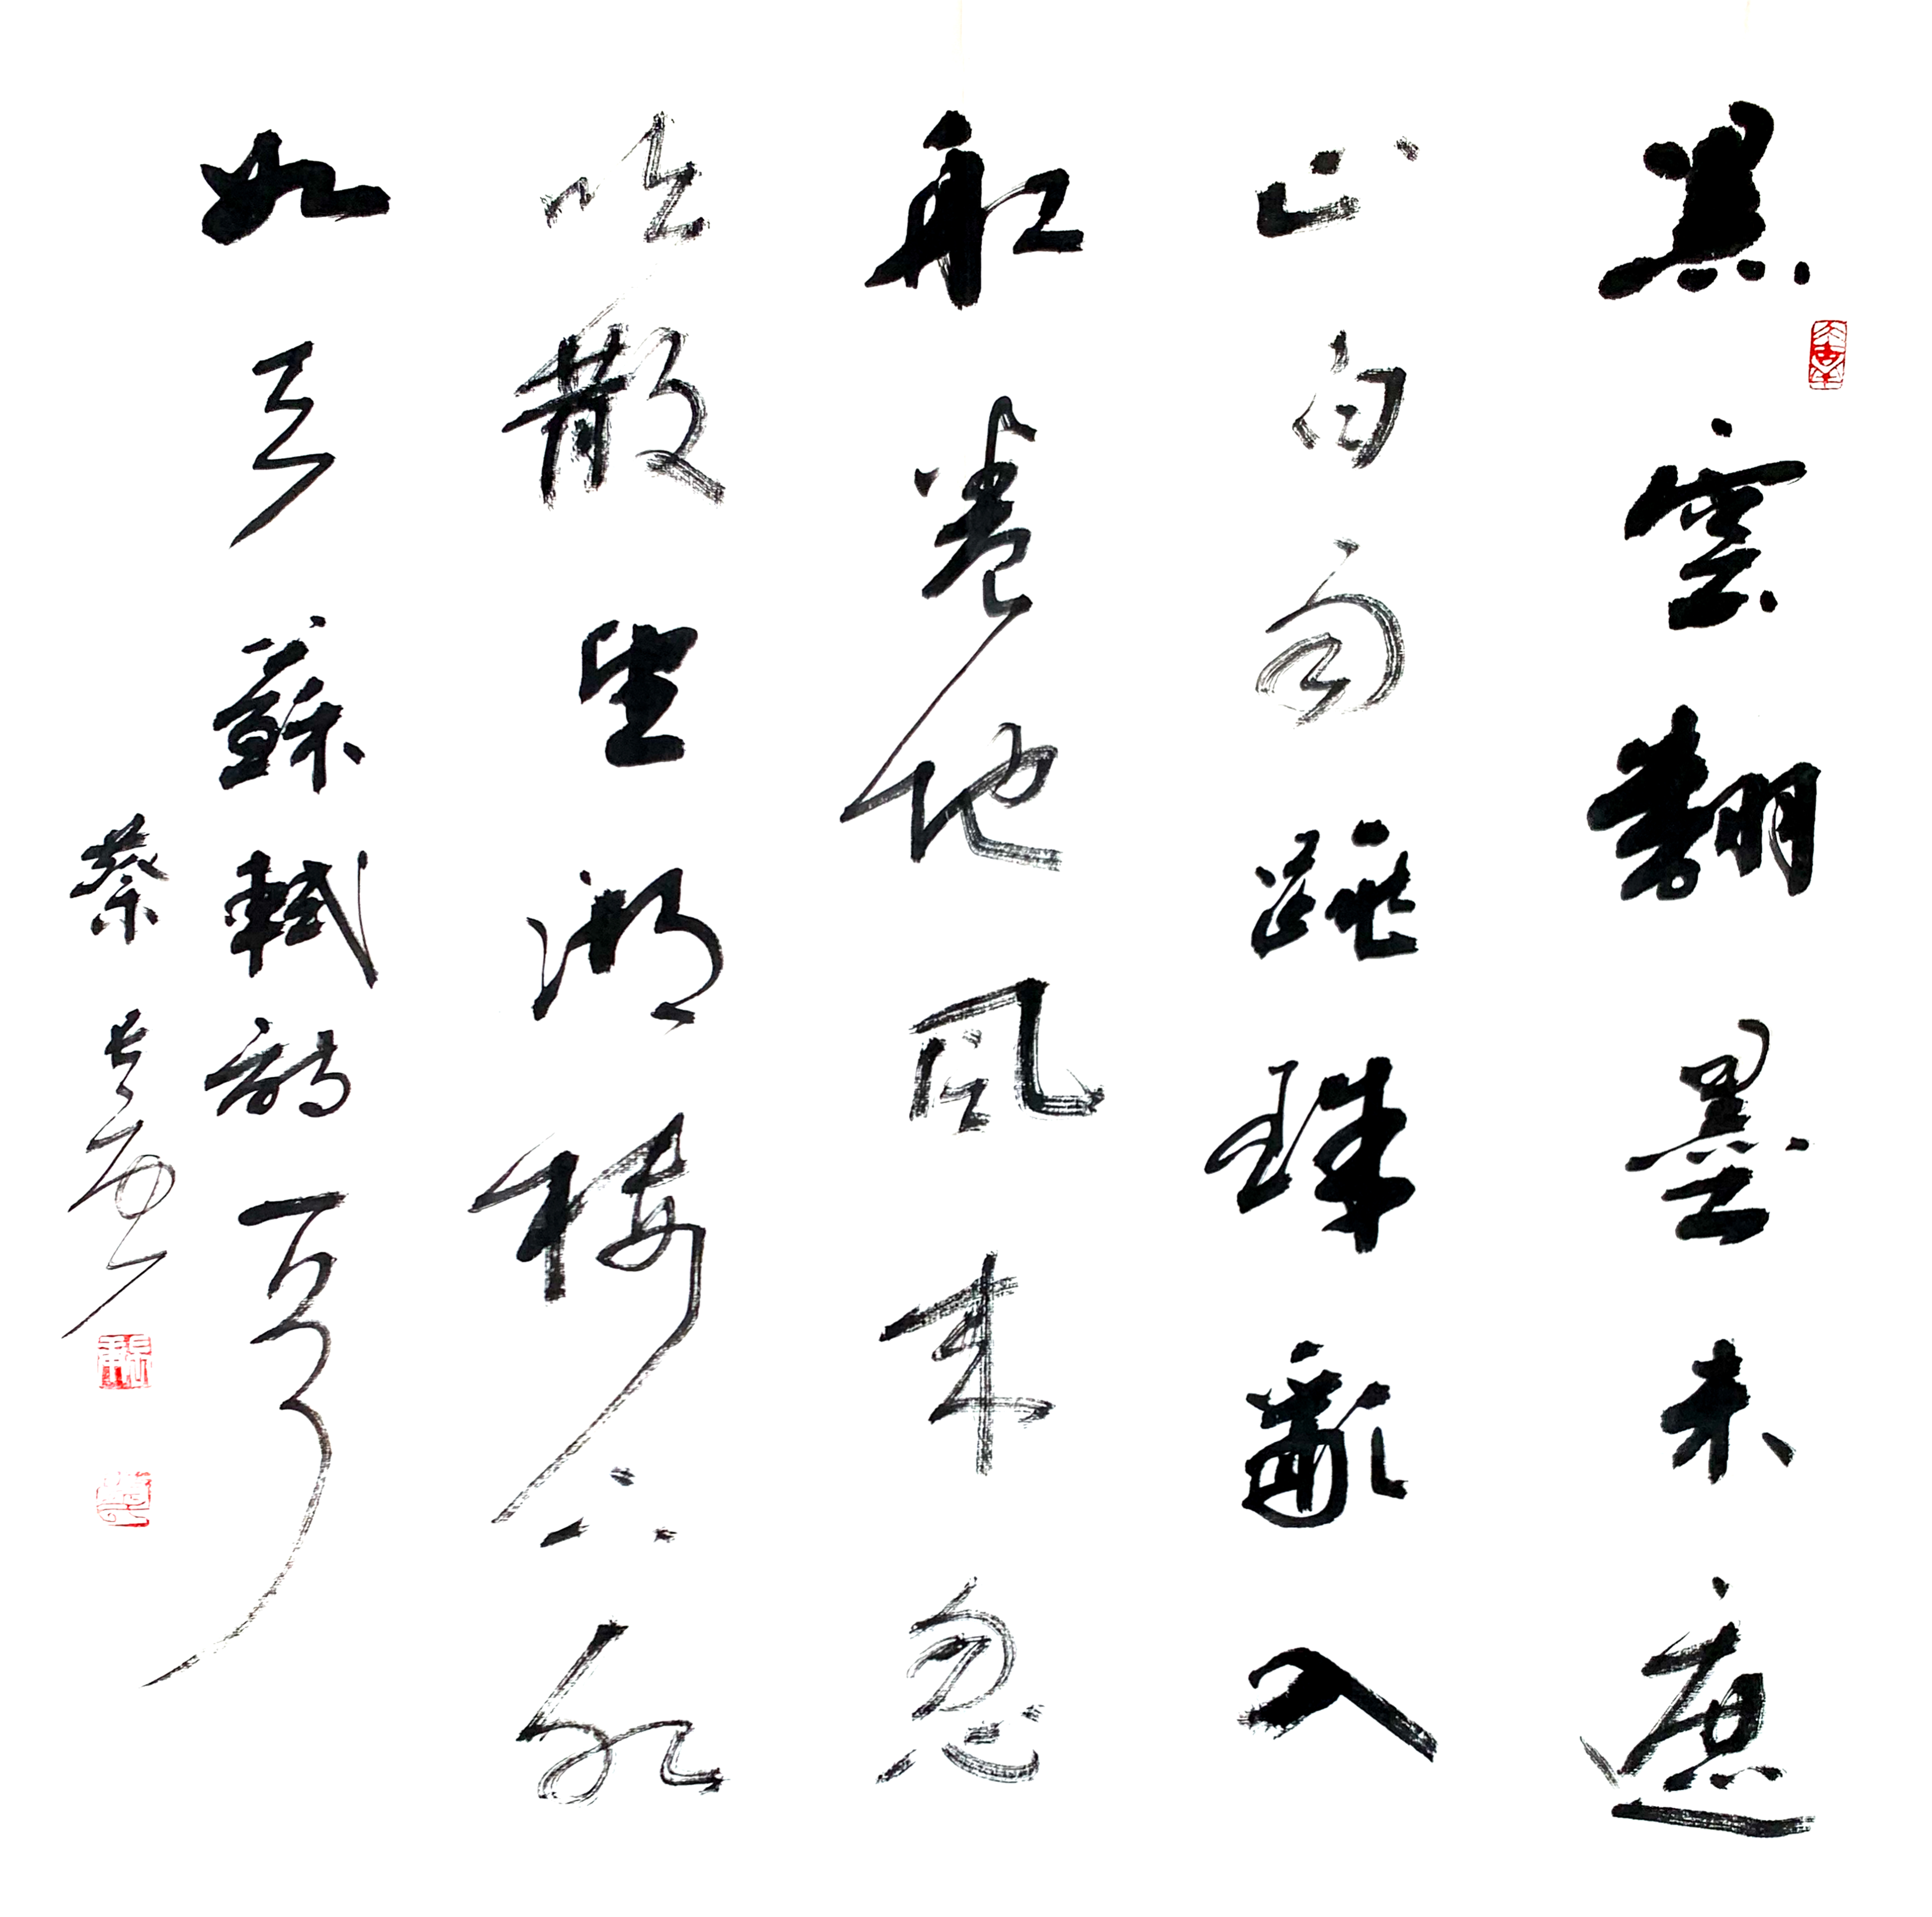 黑雲翻墨未遮
山白雨跳珠亂入
船卷地風來忽
吹散望湖樓下水
如天蘇軾詩一首
蔡